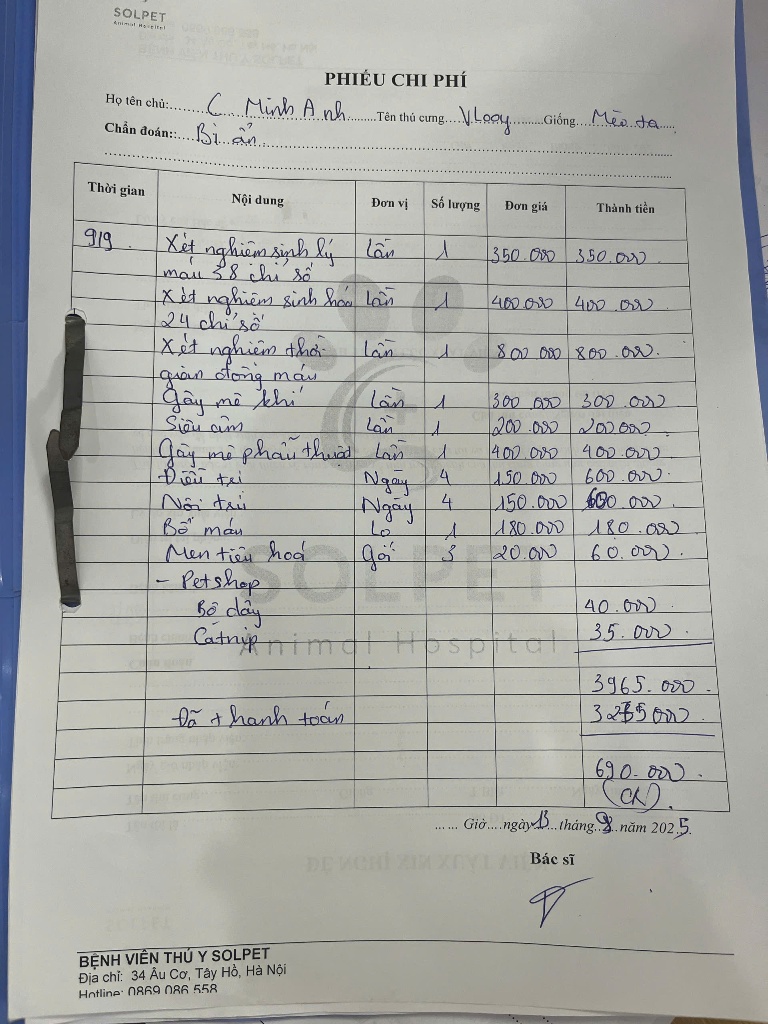 SOLPET
Animal Hospital
PHIẾU CHI PHÍ
Họ tên chủ:........C Minh Anh.........Tên thú cưng....VLooy.........Giống....Mèo ta.....
Chẩn đoán::....Bí ẩn.
Thời gian Nội dung Đơn vị Số lượng Đơn giá Thành tiền
9/9 Xét nghiệm sinh lý Lần 1 350.000 350.000
máu 38 chỉ số
Xét nghiệm sinh hoá Lần 1 400.000 400.000
24 chỉ số
Xét nghiệm thời Lần 1 800.000 800.000
gian đông máu
Gây mê khí Lần 1 300.000 300.000
Siêu âm Lần 1 200.000 200.000
Gây mê phẫu thuật Lần 1 400.000 400.000
Điều trị Ngày 4 150.000 600.000
Nội trú Ngày 4 150.000 600.000
Bổ máu Lọ 1 180.000 180.000
Men tiêu hoá Gói 3 20.000 60.000
- Petshop
Bộ dây 40.000
Catnip 35.000
SOLPET
Animal Hospital
3965.000
Đã thanh toán 3275000
690.000
(CK).
...... Giờ....ngày 13...tháng..9..năm 2025.
Bác sĩ
BỆNH VIỆN THÚ Y SOLPET
Địa chỉ: 34 Âu Cơ, Tây Hồ, Hà Nội
Hotline: 0869 086 558